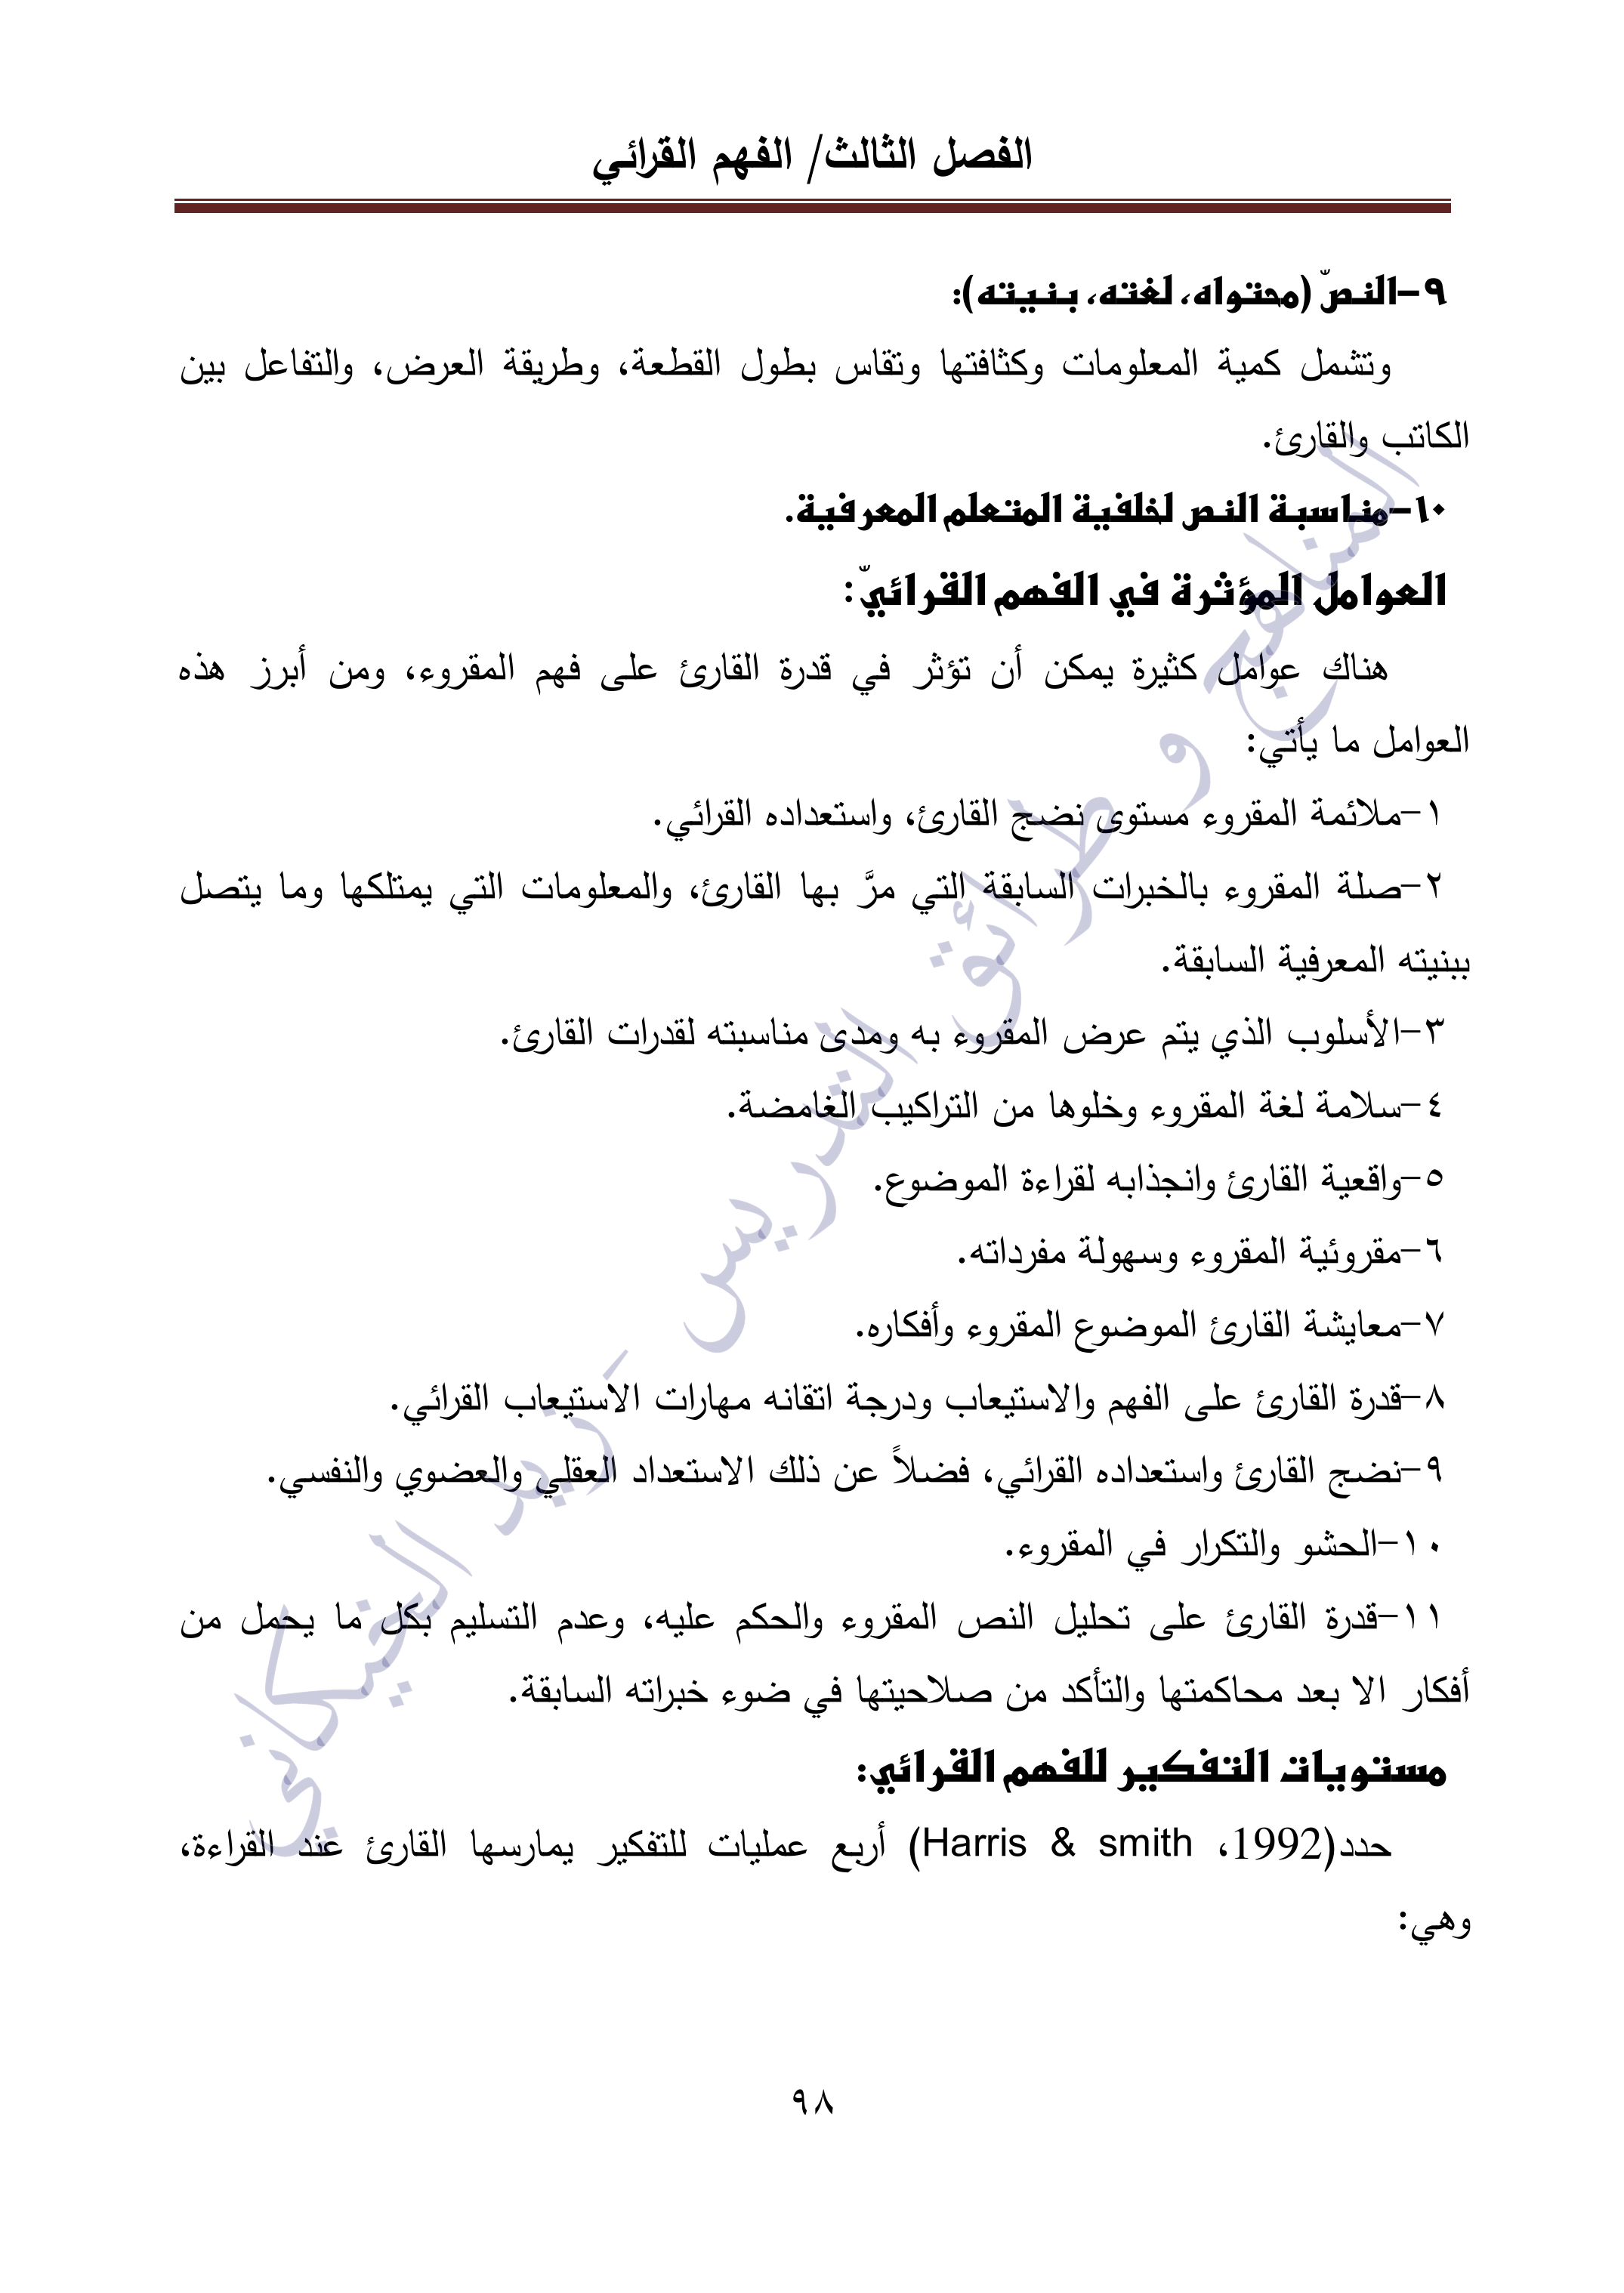 الفصل الثالث/ الفهم القرائي
٩-النصّ (محتواه، لغته، بنيته):
وتشمل كمية المعلومات وكثافتها وتقاس بطول القطعة، وطريقة العرض، والتفاعل بين
الكاتب والقارئ.
١٠-مناسبة النص لخلفية المتعلم المعرفية.
العوامل المؤثرة في الفهم القرائيّ:
هناك عوامل كثيرة يمكن أن تؤثر في قدرة القارئ على فهم المقروء، ومن أبرز هذه
العوامل ما يأتي:
١-ملائمة المقروء مستوى نضج القارئ، واستعداده القرائي.
٢-صلة المقروء بالخبرات السابقة التي مرَّ بها القارئ، والمعلومات التي يمتلكها وما يتصل
ببنيته المعرفية السابقة.
٣-الأسلوب الذي يتم عرض المقروء به ومدى مناسبته لقدرات القارئ.
٤-سلامة لغة المقروء وخلوها من التراكيب الغامضة.
٥-واقعية القارئ وانجذابه لقراءة الموضوع.
٦-مقروئية المقروء وسهولة مفرداته.
٧-معايشة القارئ الموضوع المقروء وأفكاره.
٨-قدرة القارئ على الفهم والاستيعاب ودرجة اتقانه مهارات الاستيعاب القرائي.
٩-نضج القارئ واستعداده القرائي، فضلاً عن ذلك الاستعداد العقلي والعضوي والنفسي.
١٠-الحشو والتكرار في المقروء.
١١-قدرة القارئ على تحليل النص المقروء والحكم عليه، وعدم التسليم بكل ما يحمل من
أفكار الا بعد محاكمتها والتأكد من صلاحيتها في ضوء خبراته السابقة.
مستويات التفكير للفهم القرائي:
حدد(1992، Harris & smith) أربع عمليات للتفكير يمارسها القارئ عند القراءة،
وهي:
٩٨
المناهج و طرائق التدريس - زيد الخيكاني